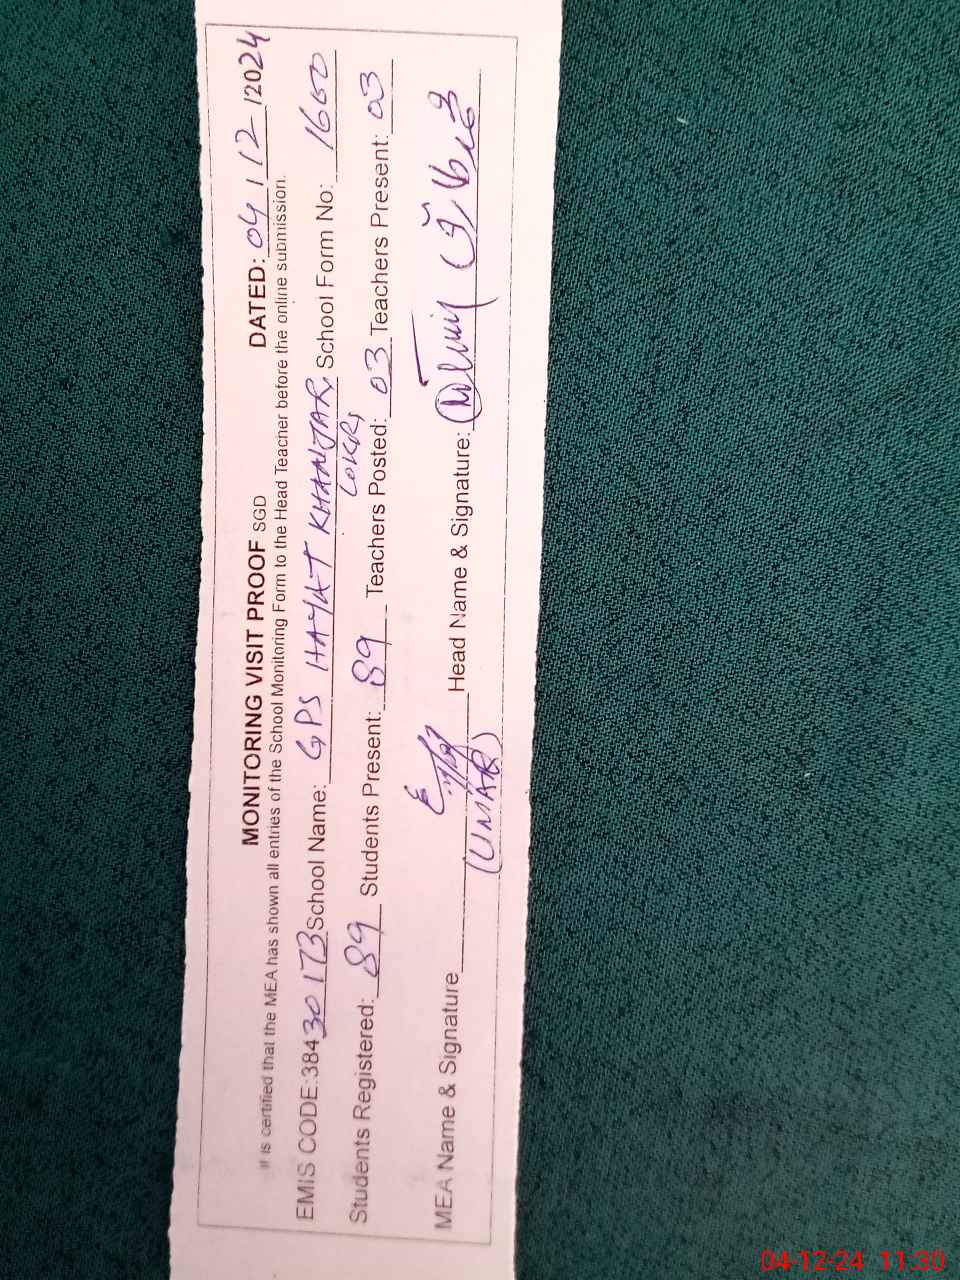 MONITORING VISIT PROOF SGD DATED: 04/12/2024
It is certified that the MEA has shown all entries of the School Monitoring Form to the Head Teacher before the online submission.
EMIS CODE:384 30173 School Name: GPS HAYAT KHANJAR, School Form No: 1660
LOKRI
Students Registered: 89 Students Present: 89 Teachers Posted: 03 Teachers Present: 03
MEA Name & Signature Head Name & Signature:
(UMAR)
04-12-24 11:30